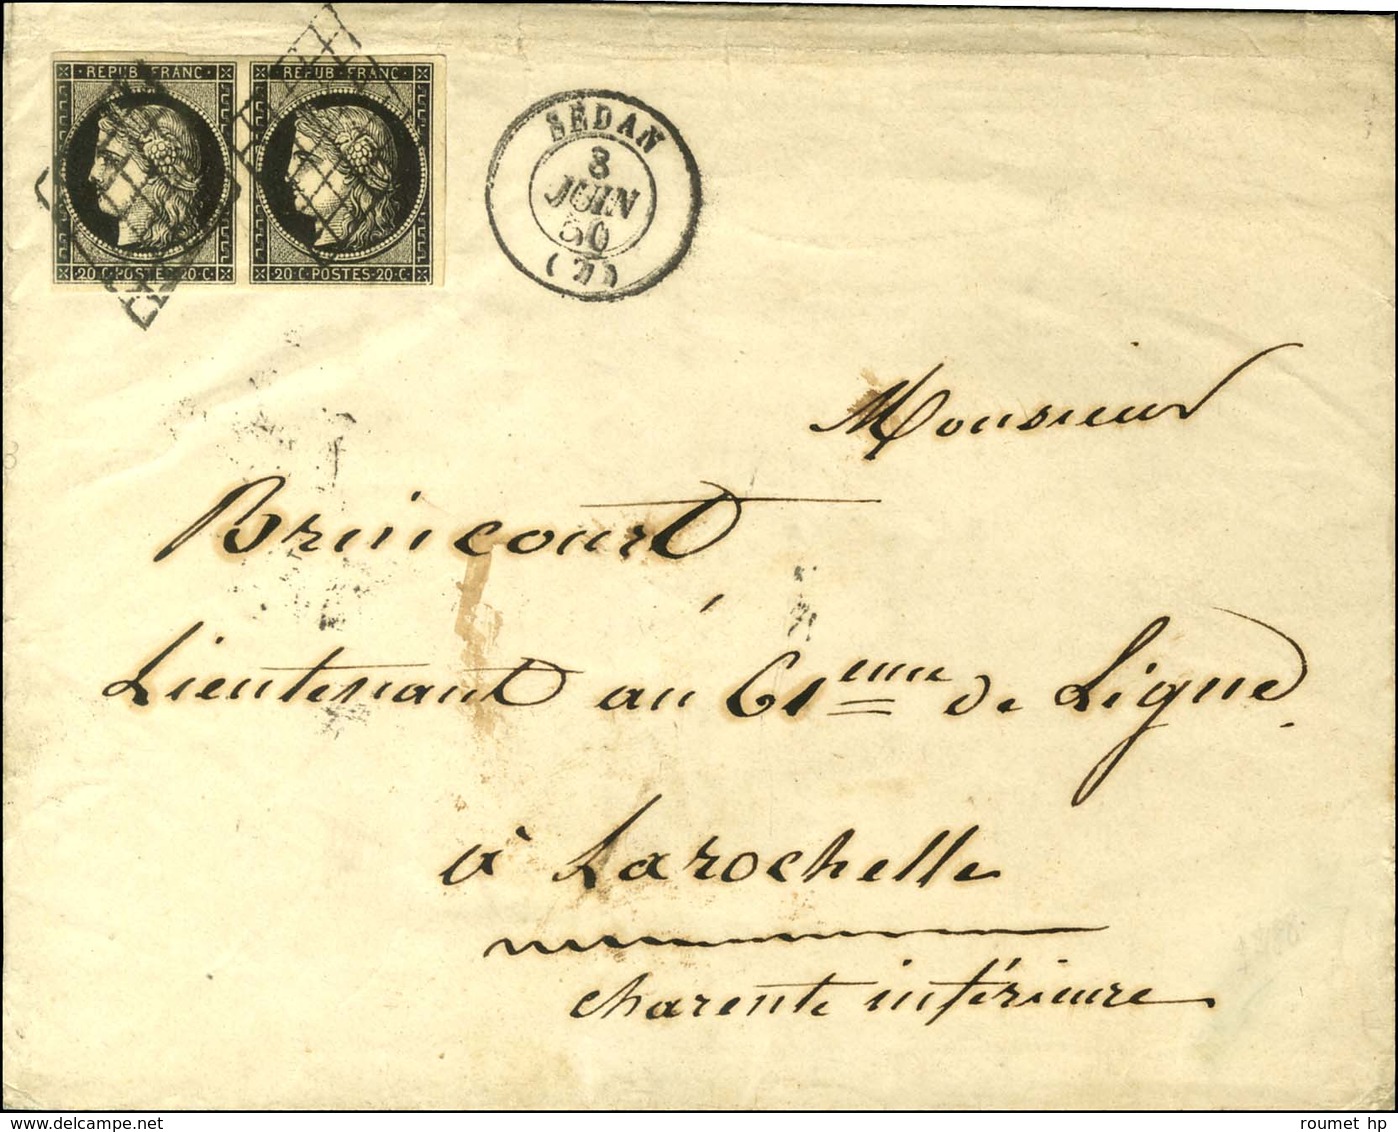 REPUB·FRANC· REPUB·FRANC·
20·C·POSTES·20·C· 20·C·POSTES·20·C·
SEDAN
8
JUIN
50
(7)
Monsieur
Brincourt
Lieutenant au 61eme de Ligne.
à Larochelle
charente inférieure
www.delcampe.net
roumet hp